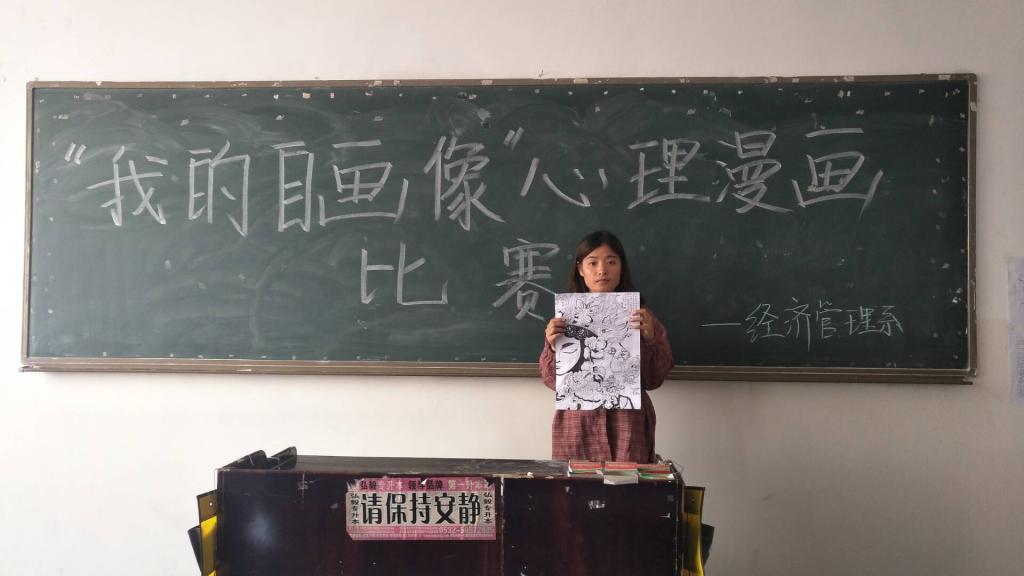 “我的自画像”心理漫画
比赛
—经济管理系
弘毅专升本 领军品牌 第一
弘毅专升本
请保持安静
弘毅专升本